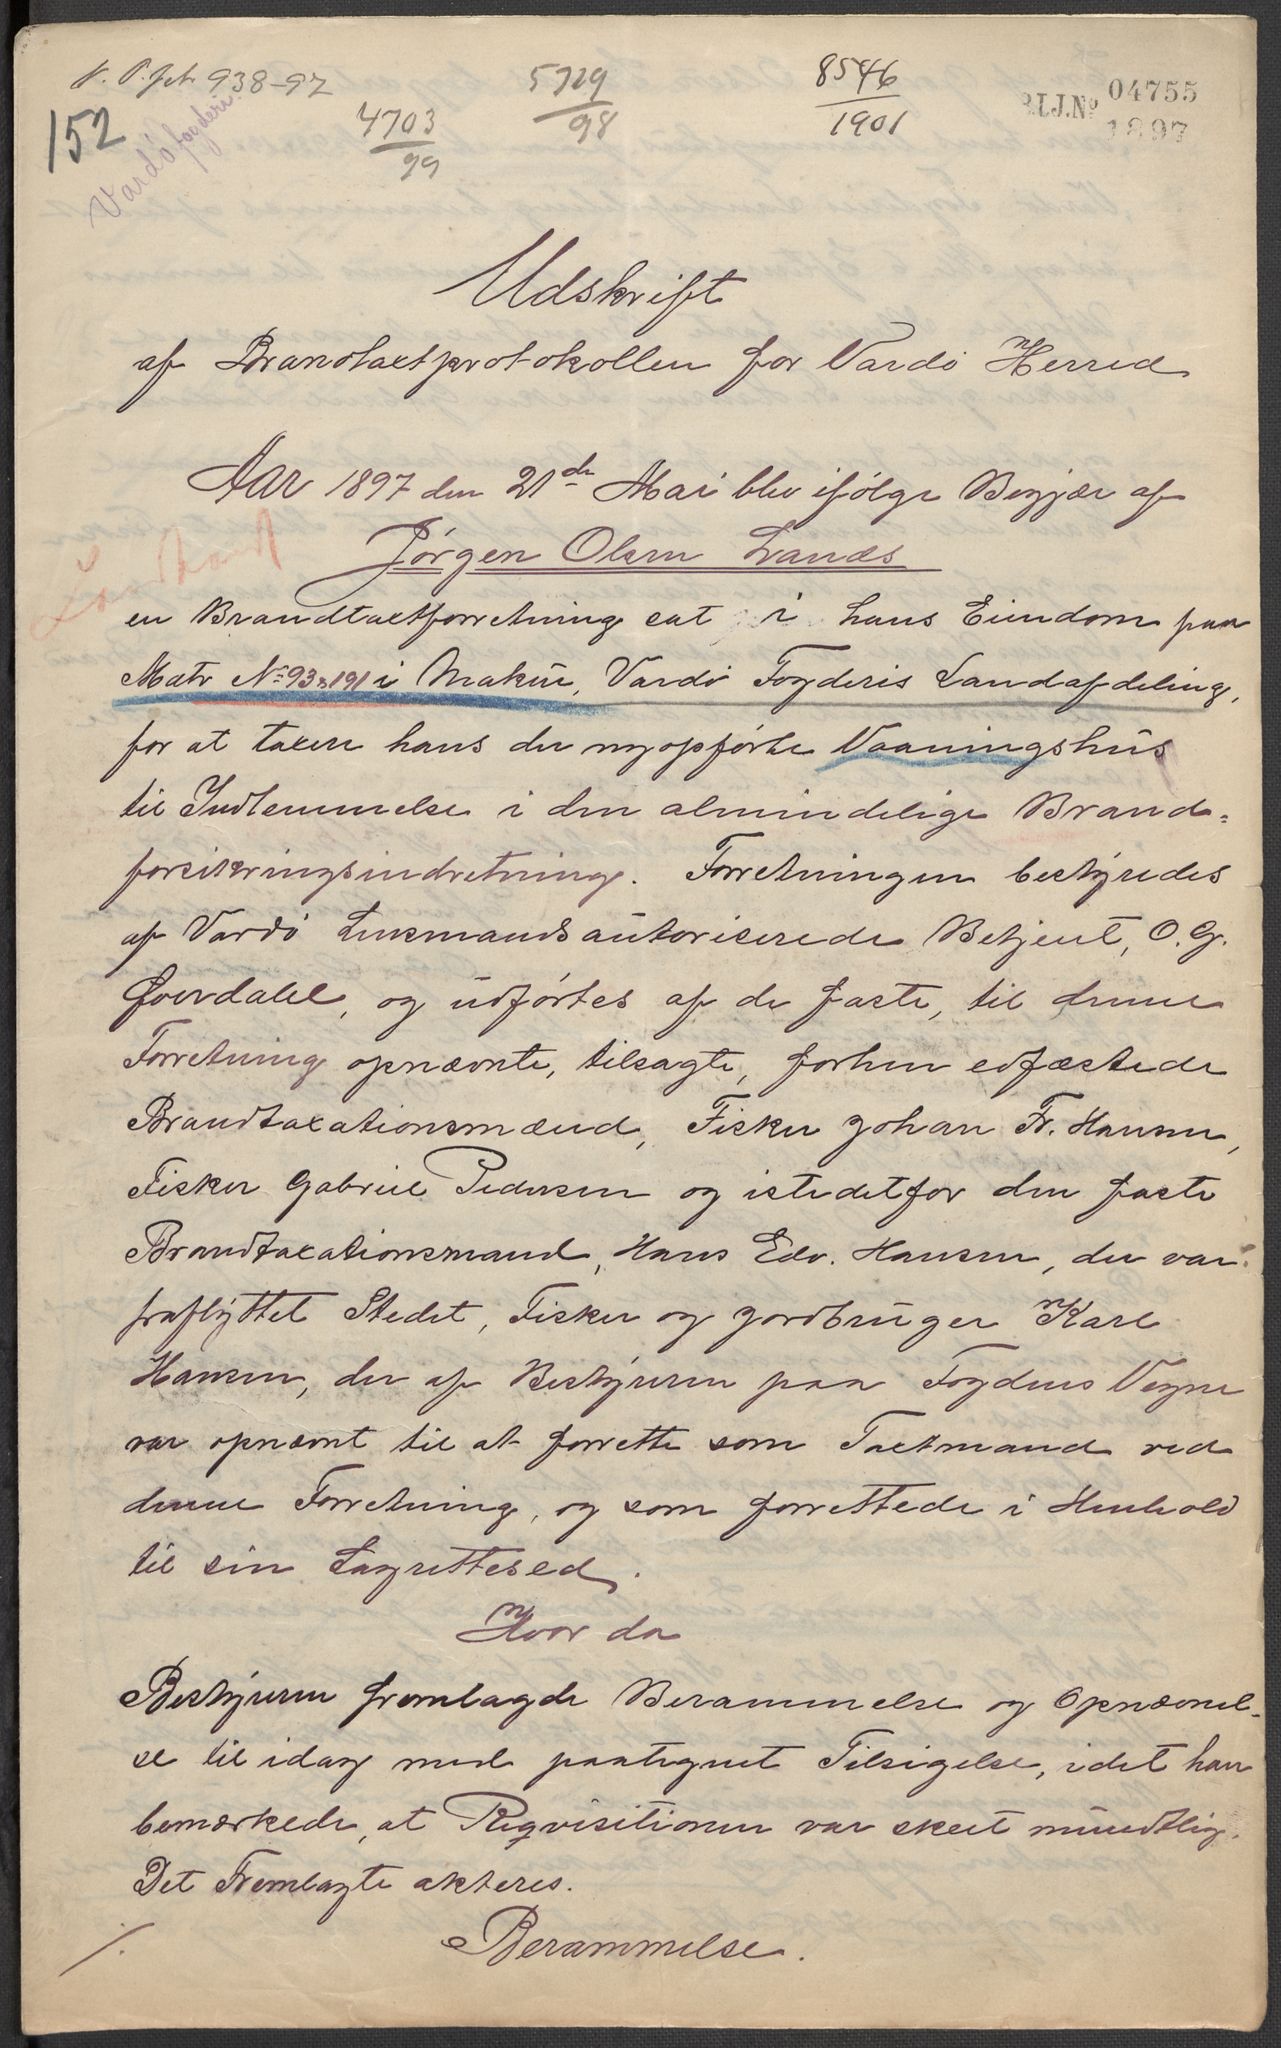 938-97
152
Vardö fogderi
4703
99
5729
98
8546
1901
RIJ.No 04755
1897
Udskrift
af Brandtaxtprotokollen for Vardö Herred
Aar 1897 den 21de Mai blev ifölge Begjær af
Jörgen Olsen Lanæs
en Brandtaxtforretning sat i hans Eiendom paa
Matr No 93, 191 i Makūr, Vardö Fogderis Landafdeling,
for at taxere hans der nyopförte Vaaningshūs
til Indlemmelse i den almindelige Brand-
forsikringsindretning. Forretningen bestyredes
af Vardö Lensmands aūtoriserede Betjent, O. G.
og ūdförtes af de faste, til denne
Forretning opnævnte, tilsagte, forhen edfæstede
Brandtaxationsmænd, Fisker Johan Fr. Hansen,
Fisker Gabriel Pedersen og istedetfor den faste
Brandtaxationsmand, Hans Edv. Hansen, der var
fraflyttet Stedet, Fisker og Jordbrūger Karl
Hansen, der af Bestyreren paa Fogdens Vegne
var opnævnt til at forrette som Taxtmand ved
denne Forretning, og som forrettede i Henhold
til sin Lagrettesed.
Hvor da
Bestyreren fremlagde Berammelse og Opnævnel-
se til idag med paategnet Tilsigelse, idet han
bemærkede, at Reqvisitionen var skeet mūndtlig.
Det Fremlagte akteres.
Berammelse.